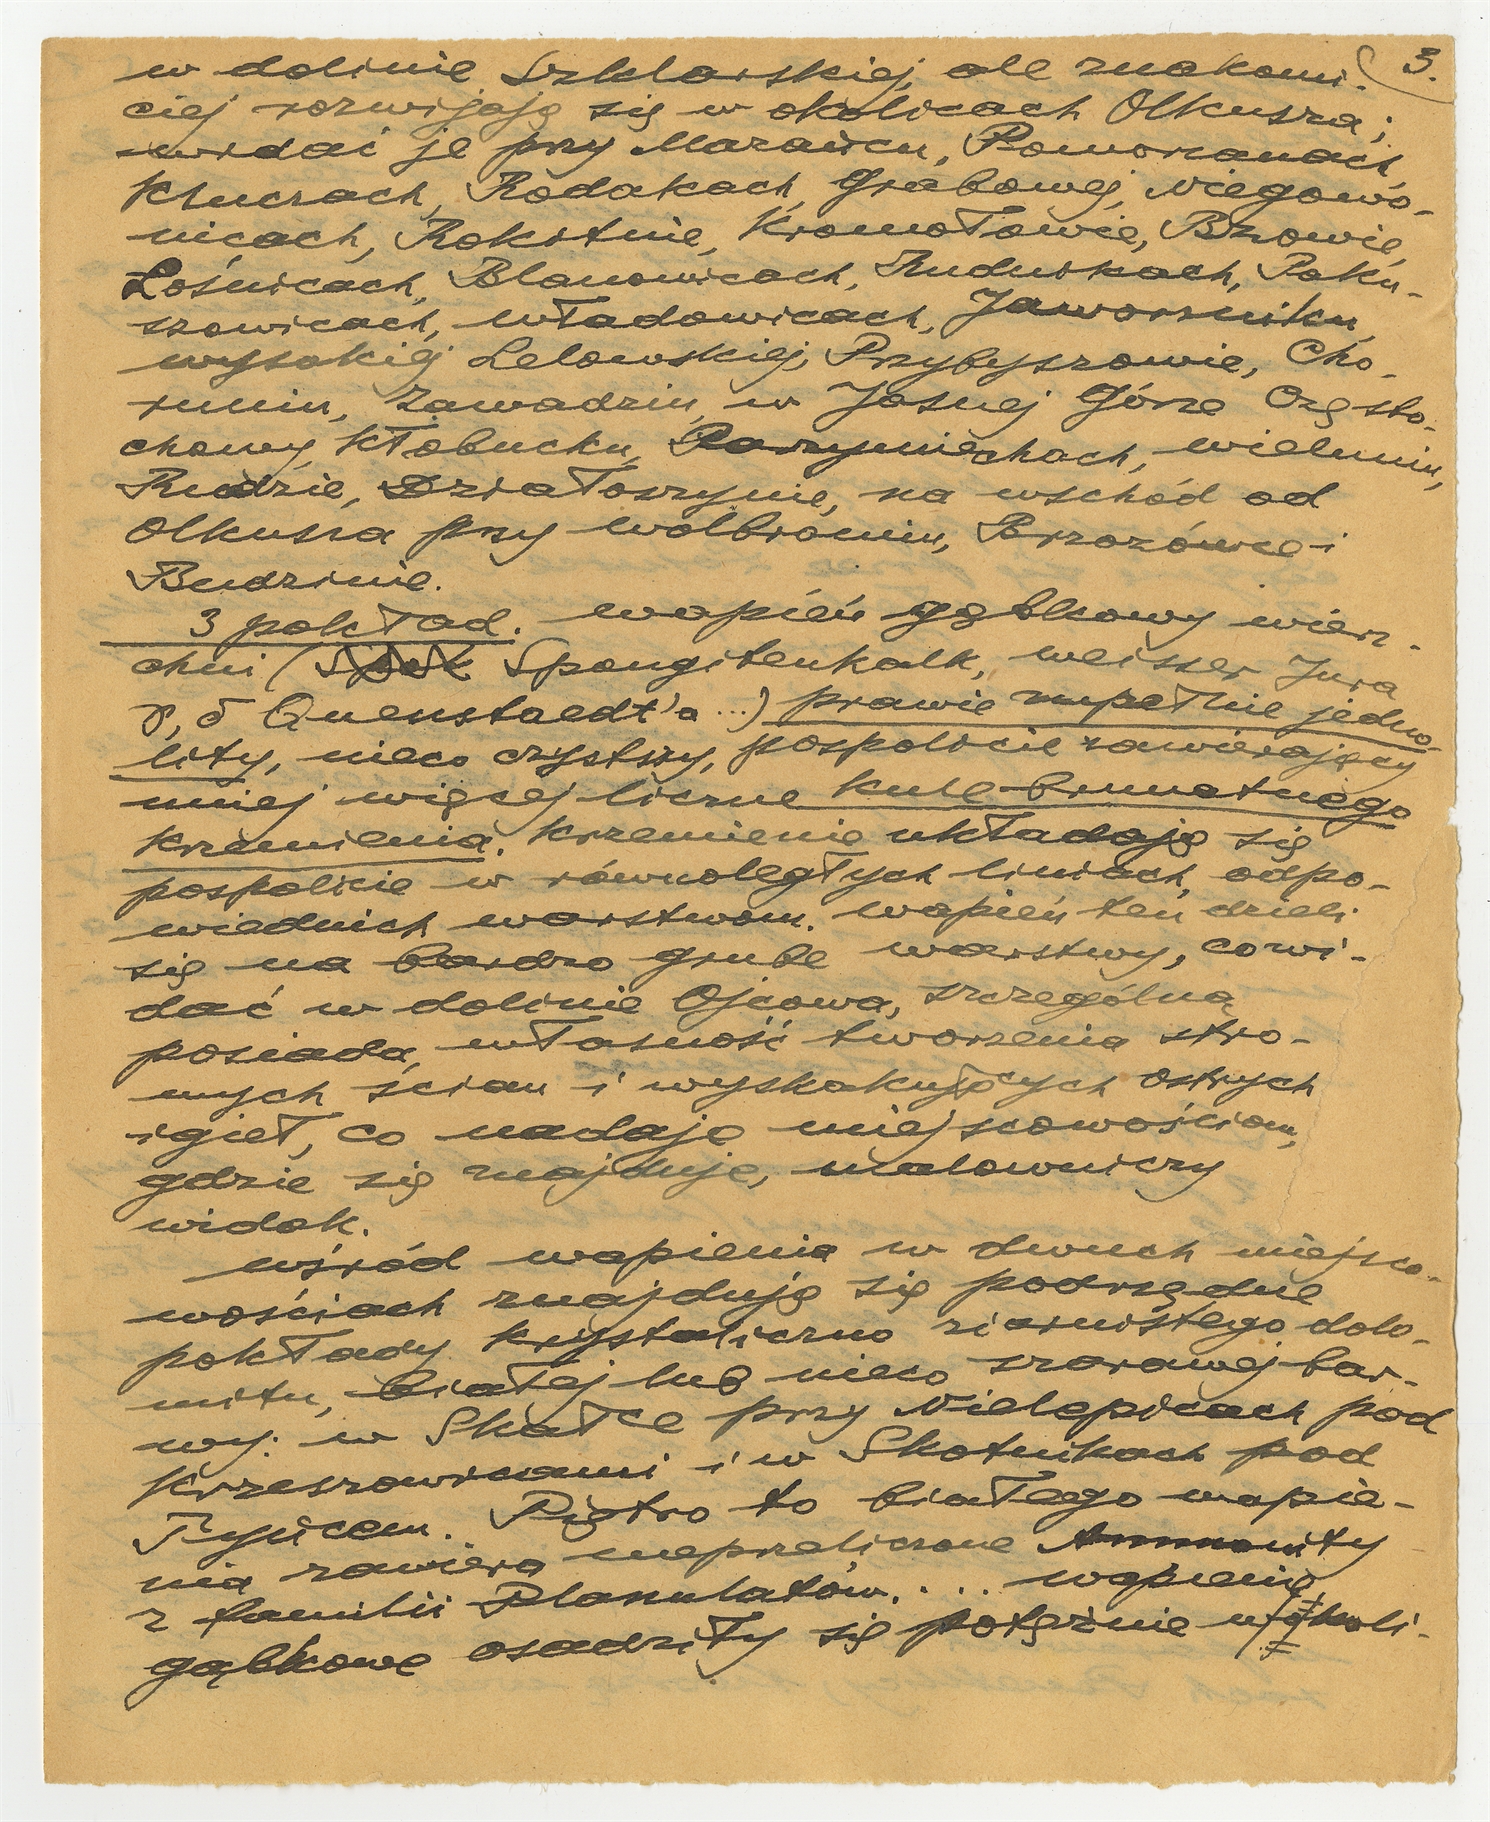 3.
w dolinie Szklarskiej, ale znakomi-
ciej rozwijają się w okolicach Olkusza;
widać je przy Mazańcu, Pomorzanach,
Kluczach, Rodakach, Grabowej, Niegowo-
nicach, Rokitnie, Kromołowie, Bzowie,
Łośnicach, Blanowicach, Rudnikach, Parku-
szowicach, Władowicach, Jaworzniku,
wysokiej Lelowskiej, Przybyszowie, Cho-
runiu, Zawadziu, w Jasnej Górze Często-
chowy, Kłobucku, Parzymiechach, Wieluniu,
Rudzie, Działoszynie, na wschód od
Olkusza przy Wolbromiu, Brzozówce i
Budzinie.
3 pokład. wapień gąbkowy wierz-
chni (Spongitenkalk, weisser Jura
γ, δ Quenstaedt'a ...) prawie zupełnie jedno-
lity, nieco czystszy, pospolicie zawierający
mniej więcej liczne kule brunatnego
krzemienia. Krzemienie układają się
pospolicie w równoległych liniach, odpo-
wiednich warstwom. wapień ten dzieli
się na bardzo grube warstwy, co wi-
dać w dolinie Ojcowa, szczególną
posiada, własność tworzenia stro-
mych ścian i wyskakujących ostrych
igieł, co nadaje miejscowościom,
gdzie się znajduje, malowniczy
widok.
wśród wapienia w dwuch miejsco-
wościach znajdują się podrzędne
pokłady krystaliczno ziarnistego dolo-
mitu, białej lub nieco szarawej bar-
wy: w Skałce przy Nielepicach pod
Krzeszowicami i w Skotnikach pod
Tyńcem. Piętro to białego wapie-
nia zawiera nieprzeliczone Ammonity
z familii Planulatów. ... wapienie
gąbkowe osadziły się potężnie w okoli-